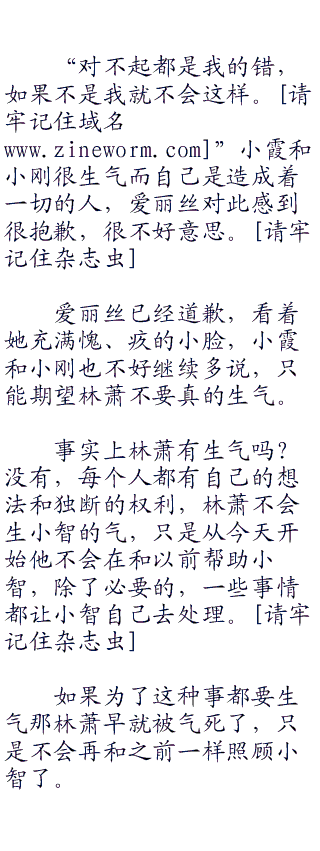 “对不起都是我的错，
如果不是我就不会这样。[请
牢记住域名
www.zineworm.com]”小霞和
小刚很生气而自己是造成着
一切的人，爱丽丝对此感到
很抱歉，很不好意思。[请牢
记住杂志虫]
爱丽丝已经道歉，看着
她充满愧、疚的小脸，小霞
和小刚也不好继续多说，只
能期望林萧不要真的生气。
事实上林萧有生气吗？
没有，每个人都有自己的想
法和独断的权利，林萧不会
生小智的气，只是从今天开
始他不会在和以前帮助小
智，除了必要的，一些事情
都让小智自己去处理。[请牢
记住杂志虫]
如果为了这种事都要生
气那林萧早就被气死了，只
是不会再和之前一样照顾小
智了。